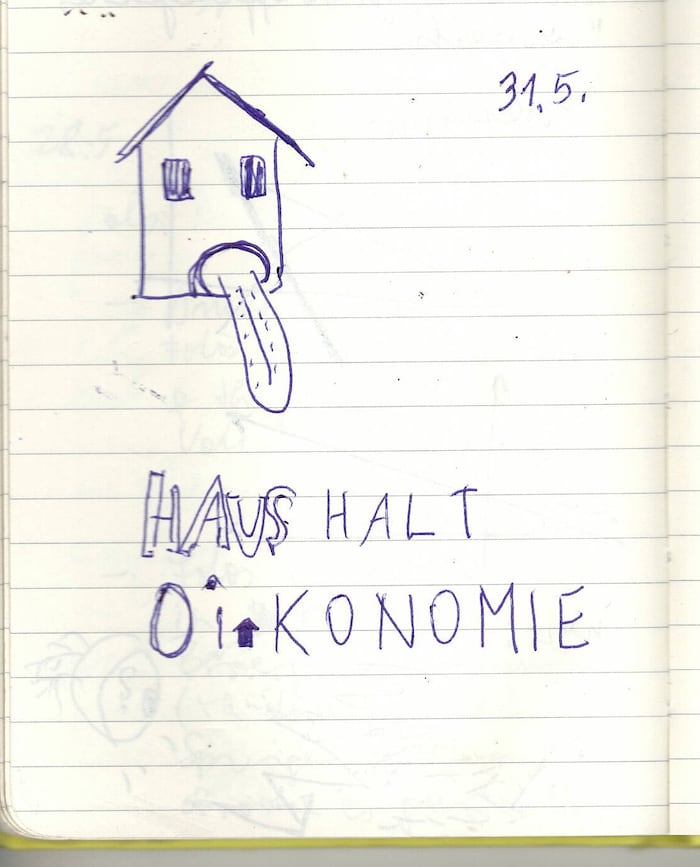 31.5.
HAUSHALT
OiKONOMIE